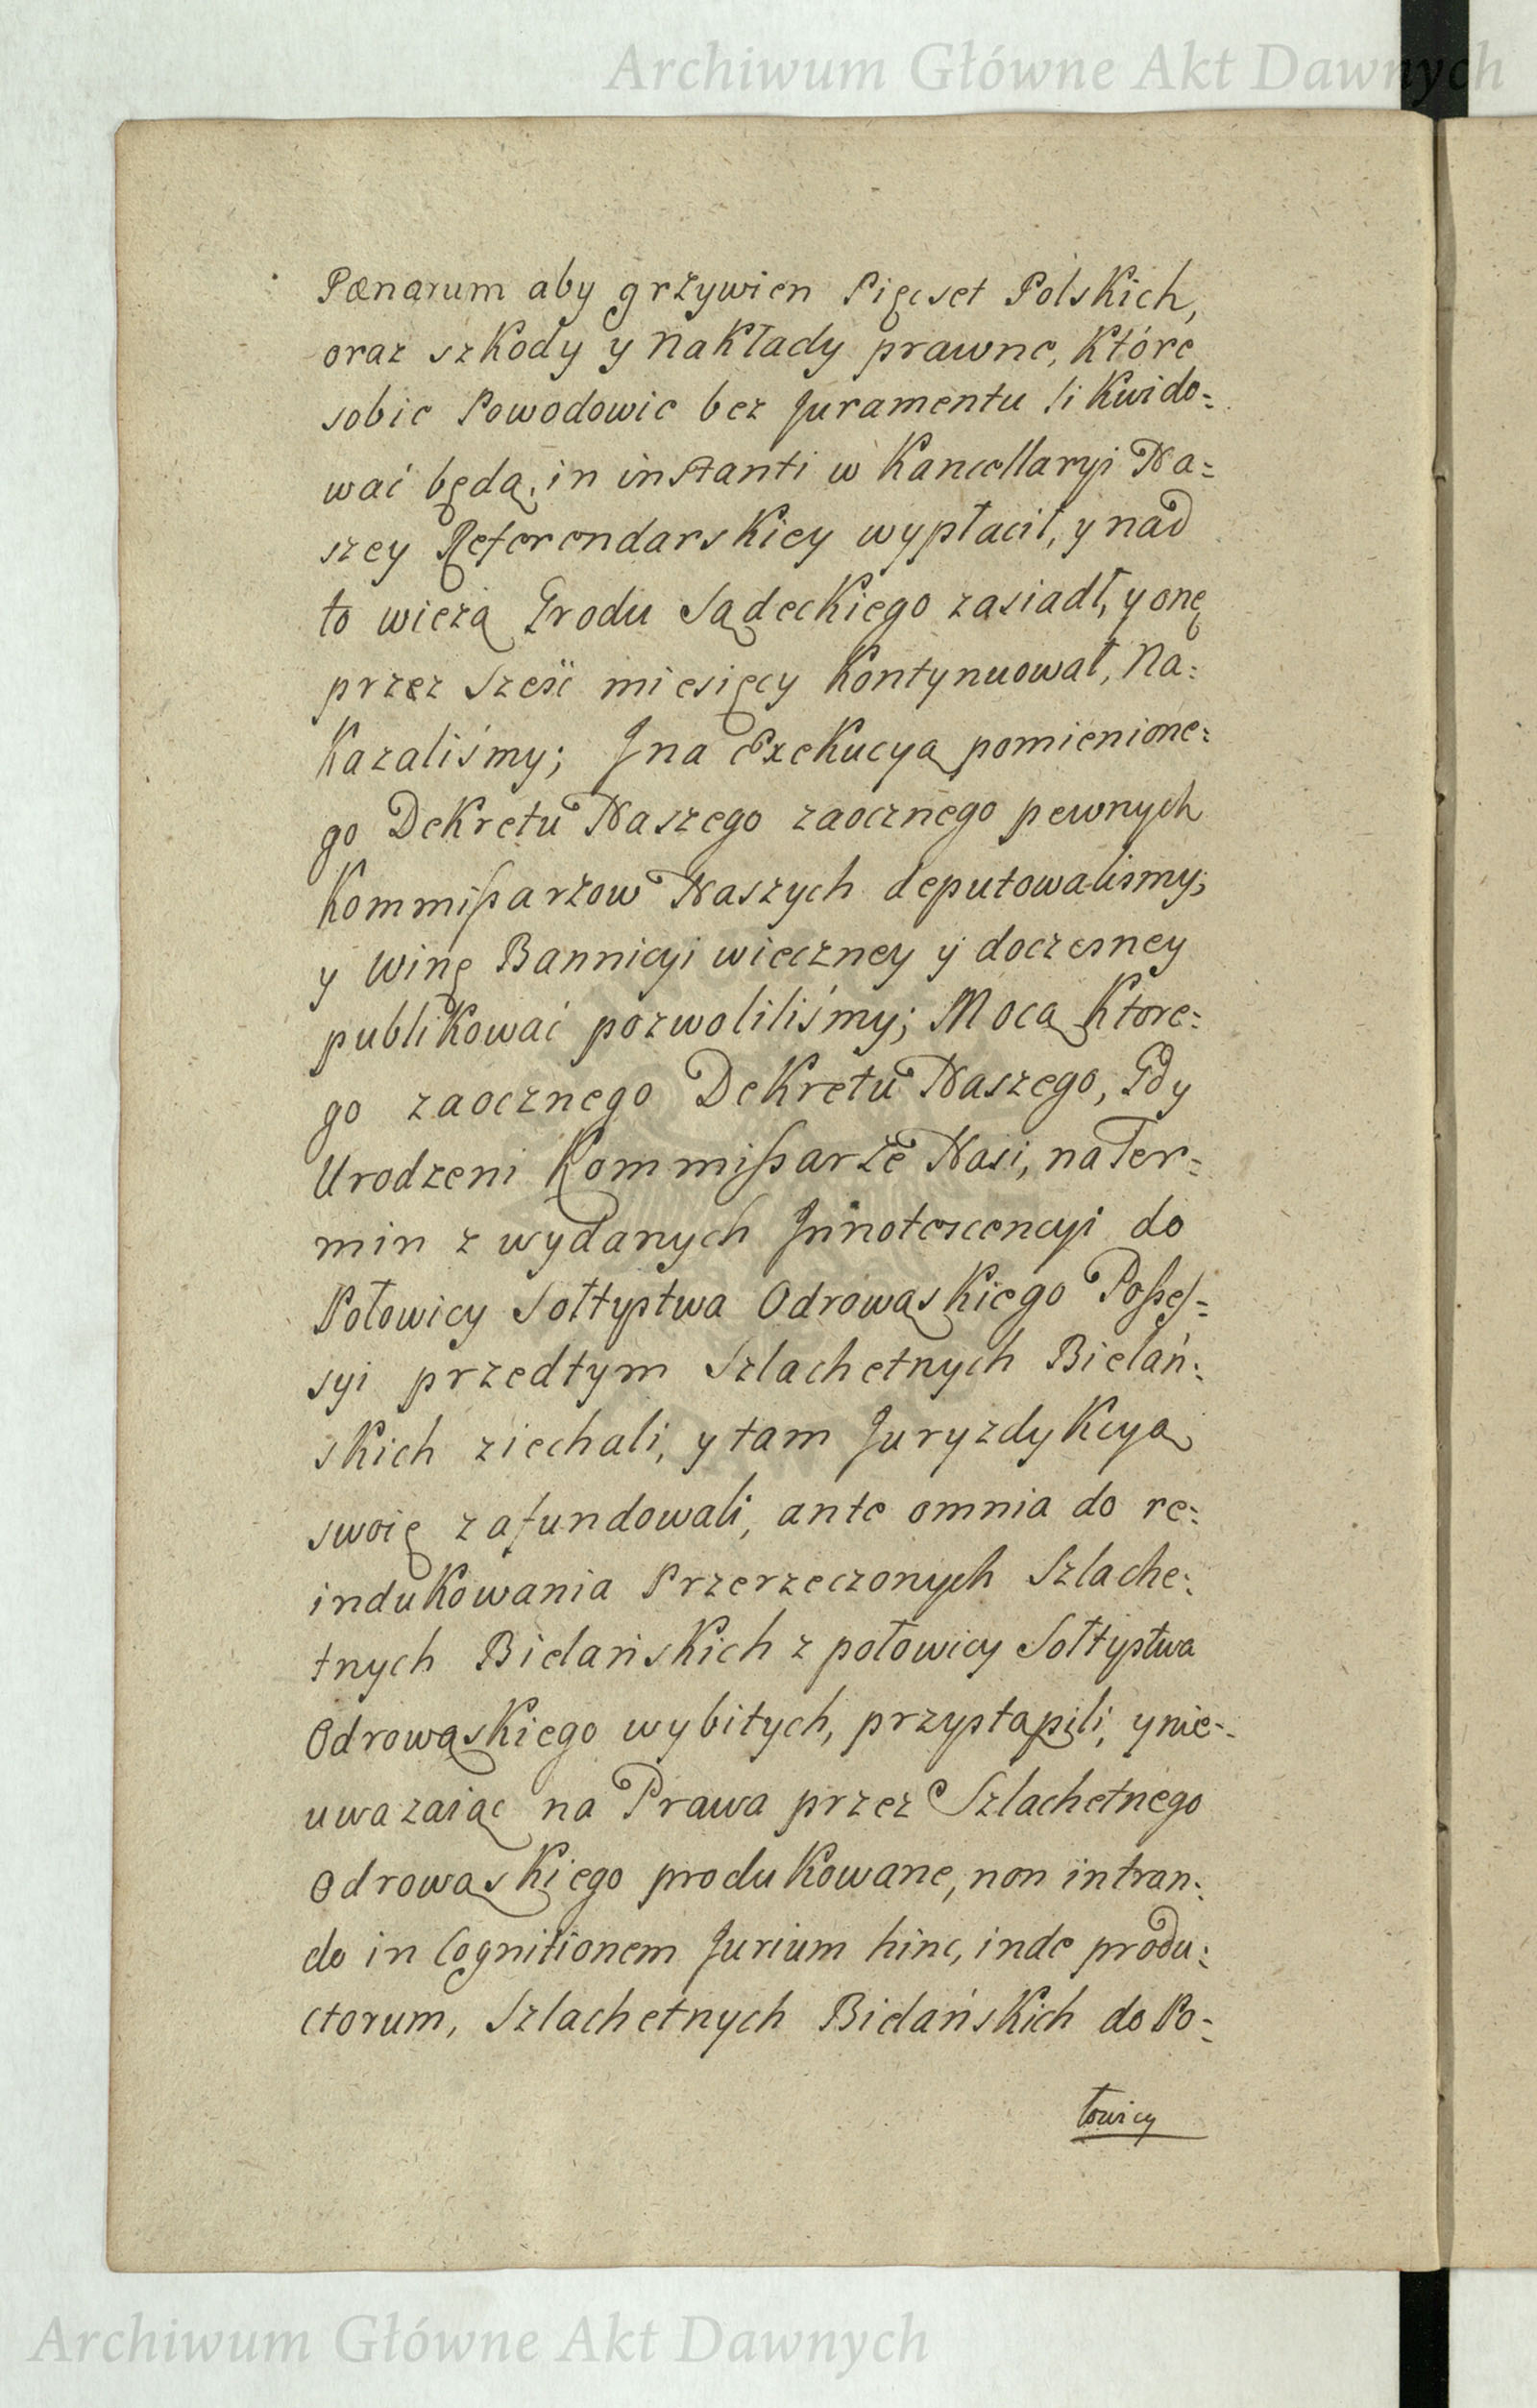 Archiwum Główne Akt Dawnych
Pœnarum aby grzywien Pięcset Polskich,
oraz szkody y nakłady prawne, które
sobie Powodowie bez Juramentu likwido=
wać będą, in instanti w Kancellaryi Na=
szey Referendarskiey wypłacił, y nad
to wieżą Grodu Sądeckiego zasiadł, y onę
przez Sześć miesięcy kontynuował, Na=
kazaliśmy; Jna Exekucyą pomienione=
go Dekretu Naszego zaocznego pewnych
Kommißarzow Naszych deputowalismy;
y Winę Bannicyi wieczney y doczesney
publikować pozwoliliśmy; Mocą ktore=
go zaocznego Dekretu Naszego, Gdy
Urodzeni Kommißarze Nasi, na Ter=
min z wydanych Jnnotescencyi do
Połowicy Sołtystwa Odrowąskiego Poßes=
syi przedtym Szlachetnych Bielań=
skich ziechali, y tam Juryzdykcyą
swoię zafundowali, ante omnia do re=
indukowania Przerzeczonych Szlache=
tnych Bielańskich z połowicy Sołtystwa
Odrowąskiego wybitych, przystąpili, y nie=
uważaiąc na Prawa przez Szlachetnego
Odrowąskiego produkowane, non intran=
do in Cognitionem Jurium hinc, inde produ=
ctorum, Szlachetnych Bielańskich do Po=
łowicy
Archiwum Główne Akt Dawnych